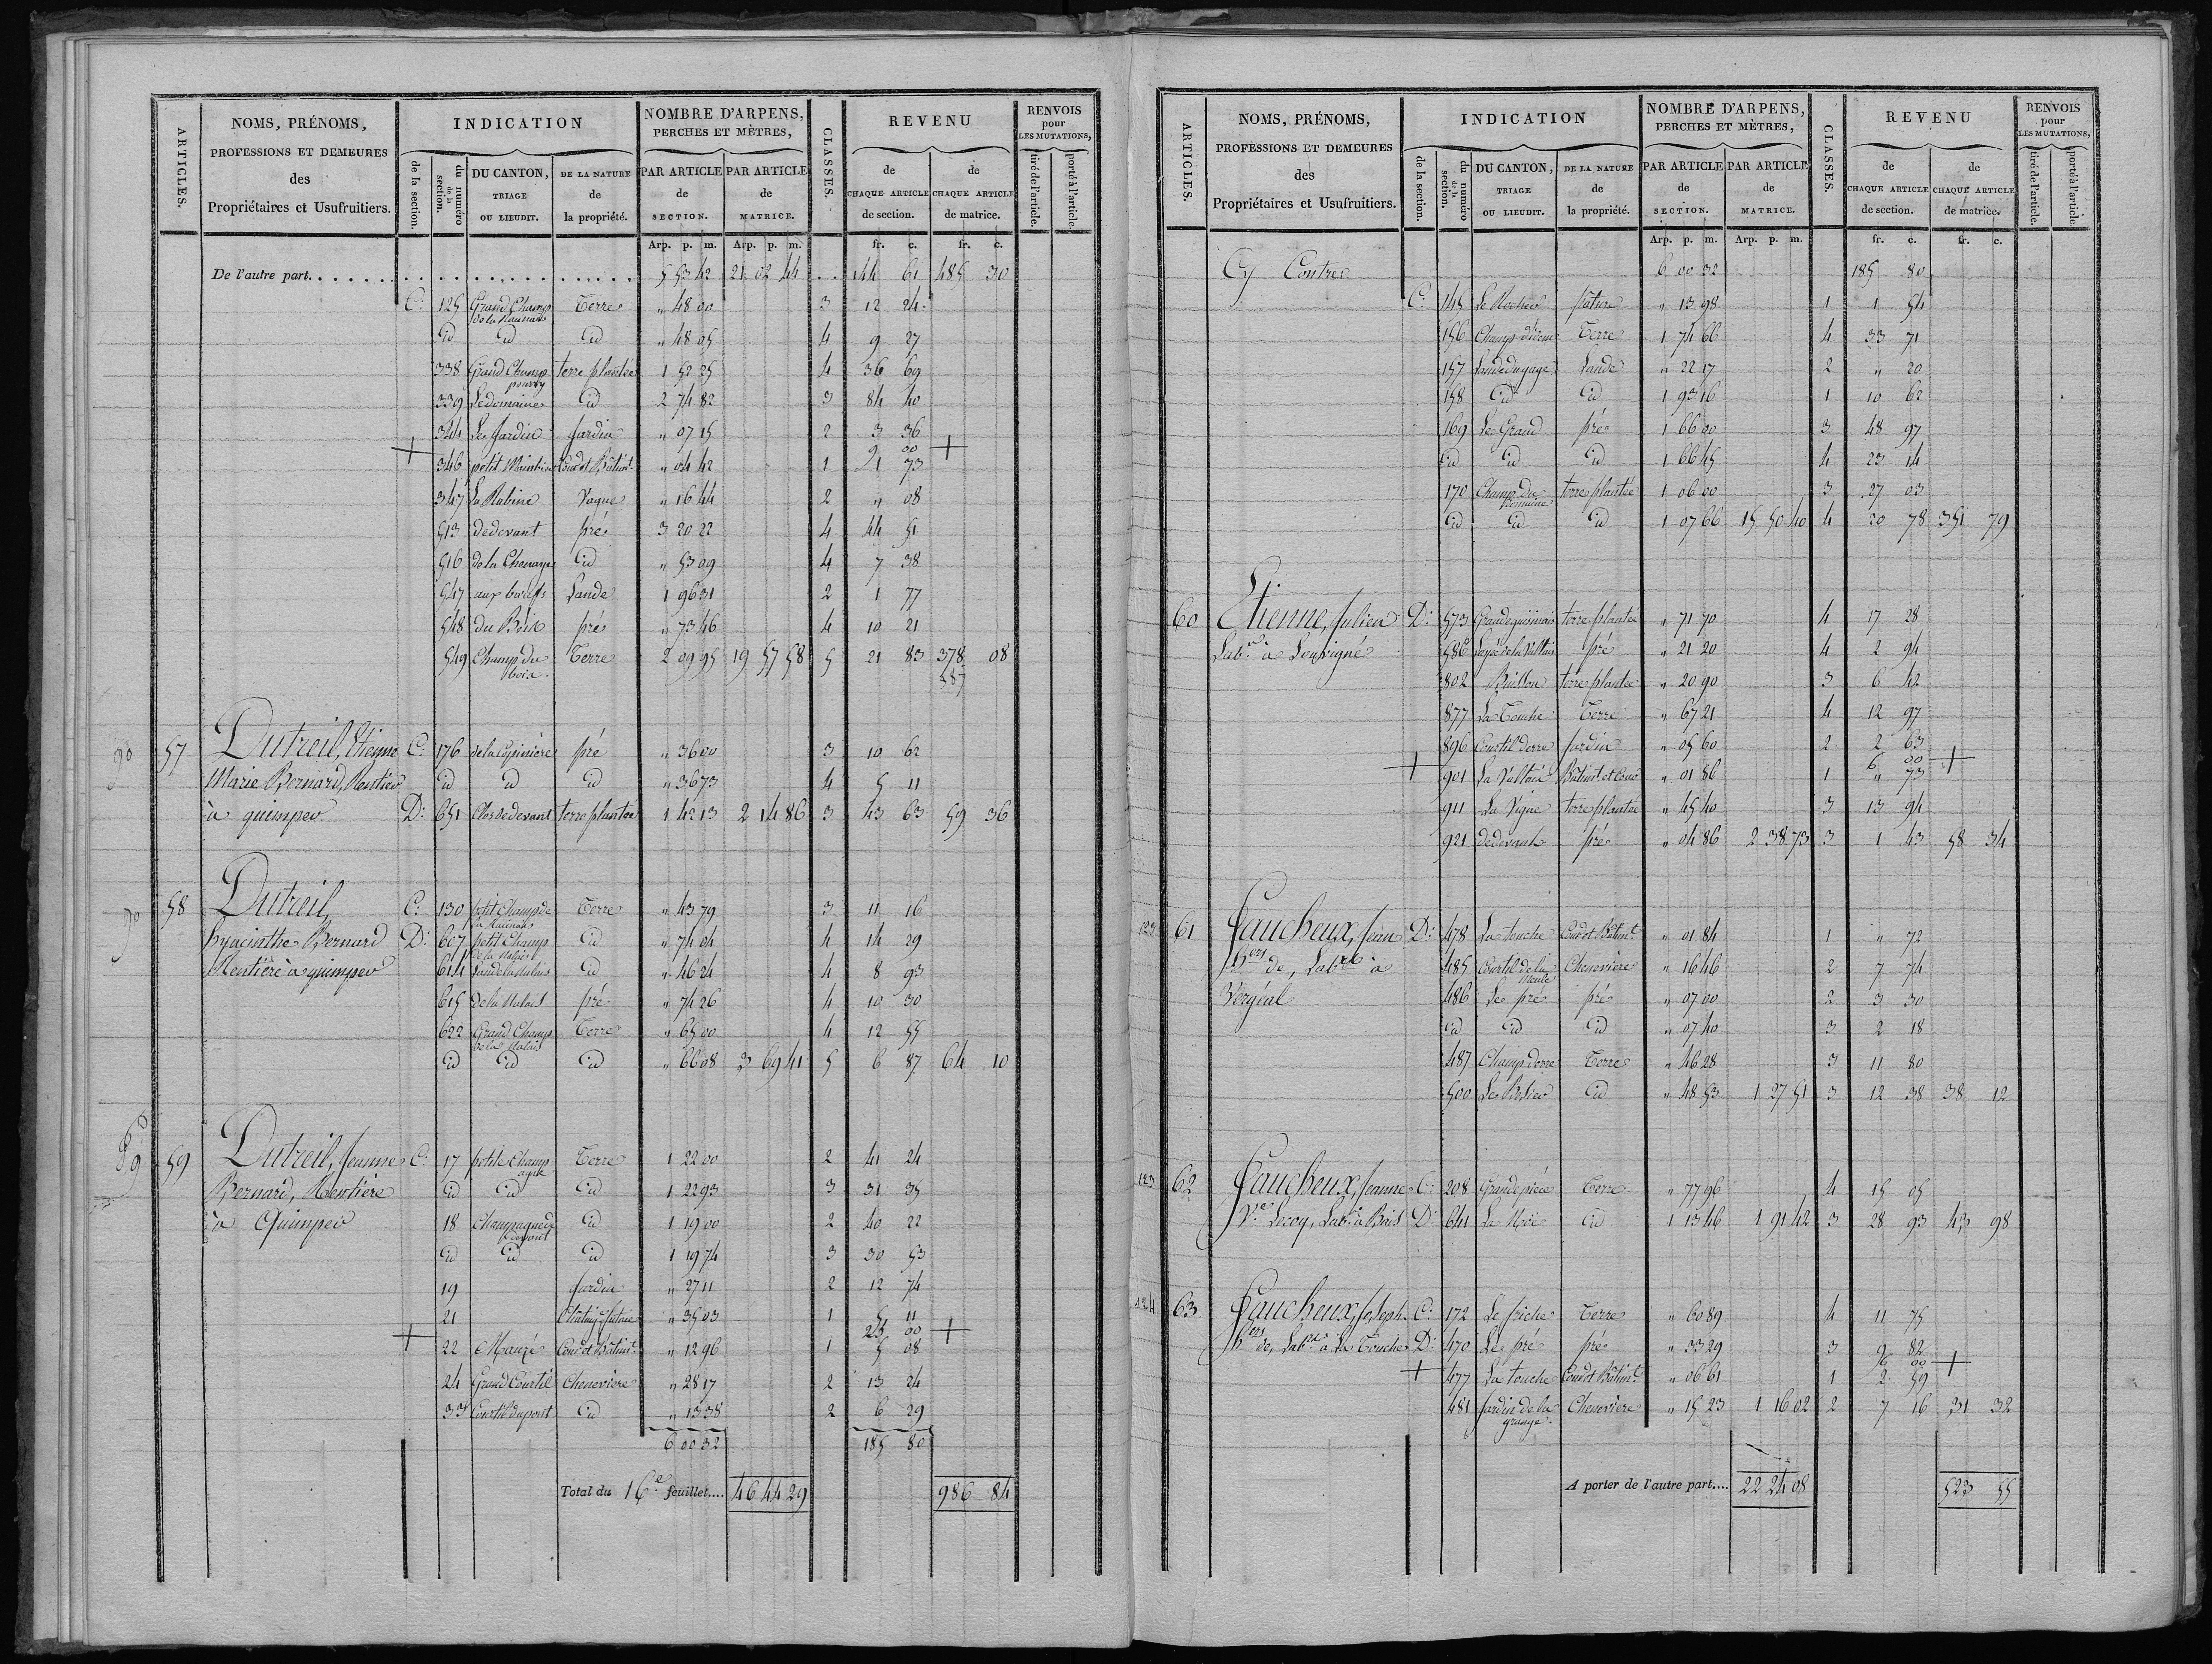 ARTICLES.
NOMS, PRÉNOMS, PROFESSIONS ET DEMEURES des Propriétaires et Usufruitiers.
INDICATION
de la section.
du numéro de la section.
DU CANTON, TRIAGE OU LIEUDIT.
DE LA NATURE de la propriété.
NOMBRE D'ARPENS, PERCHES ET MÈTRES,
PAR ARTICLE de SECTION.
PAR ARTICLE de MATRICE.
CLASSES.
REVENU
de CHAQUE ARTICLE de section.
de CHAQUE ARTICLE de matrice.
RENVOIS pour LES MUTATIONS,
tiré de l'article.
porté à l'article.
Arp. p. m. Arp. p. m. fr. c. fr. c.
De l'autre part. 5 53 42 21 02 44 144 61 485 30
C. 125 Grand Champ de la Terre " 48 00 3 12 24
id id id " 48 05 4 9 27
338 Grand Champ pourry terre plantée 1 52 25 4 36 69
339 Le domaine id 2 74 82 3 84 40
344 Le Jardin Jardin " 07 15 2 3 36
9 00
+ 346 petit Cour et Bâtimt. " 04 42 1 1 73 +
347 La Rabine Vague " 16 44 2 " 08
513 de devant pré 3 20 22 4 44 51
516 de la Chenaye id " 53 09 4 7 38
547 aux boeufs Lande 1 96 31 2 1 77
548 du Bois pré " 73 46 4 10 21
549 Champ du bois Terre 2 09 95 19 57 58 5 21 83 378 08
387
57 Dutreil, Etienne C. 176 de la pré " 36 00 3 10 62
Marie Bernard, Rentier id id id " 36 73 4 5 11
à quimper D. 651 Clos de devant terre plantée 1 42 13 2 14 86 3 43 63 59 36
58 Dutreil, C. 130 petit Champ de la Terre " 43 79 3 11 16
hyacinthe Bernard D. 607 petit Champ de la id " 74 04 4 14 29
Rentière à quimper 614 id " 46 24 4 8 93
615 de la pré " 74 26 4 10 30
622 Grand Champ de la Terre " 65 00 4 12 55
id id id " 66 08 3 69 41 5 6 87 64 10
59 Dutreil, Jeanne C. 17 petite Champagne Terre 1 22 00 2 41 24
Bernard, Rentière id id id 1 22 93 3 31 35
à Quimper 18 Champagne id 1 19 00 2 40 22
id id id 1 19 74 3 30 53
19 Jardin " 27 11 2 12 74
21 futaie " 35 03 1 5 11
25 00
+ 22 Mauzé Cour et Bâtimt. " 12 96 1 5 08 +
24 Grand Courtil Cheneviere " 28 17 2 13 24
33 Courtil du pont id " 13 38 2 6 29
6 00 32 185 80
Total du 16e feuillet.... 46 44 29 986 84
ARTICLES.
NOMS, PRÉNOMS, PROFESSIONS ET DEMEURES des Propriétaires et Usufruitiers.
INDICATION
de la section.
du numéro de la section.
DU CANTON, TRIAGE OU LIEUDIT.
DE LA NATURE de la propriété.
NOMBRE D'ARPENS, PERCHES ET MÈTRES,
PAR ARTICLE de SECTION.
PAR ARTICLE de MATRICE.
CLASSES.
REVENU
de CHAQUE ARTICLE de section.
de CHAQUE ARTICLE de matrice.
RENVOIS pour LES MUTATIONS,
tiré de l'article.
porté à l'article.
Arp. p. m. Arp. p. m. fr. c. fr. c.
Cy Contre 6 00 32 185 80
C. 145 Le Rocher pâture " 13 98 1 1 54
156 Terre 1 74 66 4 33 71
157 Lande Lande " 22 17 2 " 20
158 id id 1 93 16 1 10 62
169 Le Grand pré 1 66 00 3 48 97
id id id 1 66 45 4 23 14
170 Champ du domaine terre plantée 1 06 00 3 27 03
id id id 1 07 66 15 50 40 4 20 78 351 79
60 Etienne, Julien D. 573 terre plantée " 71 70 4 17 28
Labr. à Louvigné 586 pré " 21 20 4 2 94
802 Buisson terre plantée " 20 90 3 6 42
877 La Touche Terre " 67 21 4 12 97
896 Courtil Jardin " 05 60 2 2 63
6 00
+ 901 La Bâtimt. et Cour " 01 86 1 " 73 +
911 La Vigne terre plantée " 45 40 3 13 94
921 de devant pré " 04 86 2 38 73 3 1 43 58 34
122 61 Faucheux, Jean D. 478 La touche Cour et Bâtimt. " 01 84 1 " 72
hers de, Labr à 485 Courtil de la Cheneviere " 16 46 2 7 74
Vergéal 486 Le pré pré " 07 00 2 3 30
id id id " 07 40 3 2 18
487 Terre " 46 28 3 11 80
500 id " 48 53 1 27 51 3 12 38 38 12
123 62 Faucheux, Jeanne C. 208 Grande pièce Terre " 77 96 4 15 05
Ve Lecoq, Labr. à Bais D. 641 La Noë id 1 13 46 1 91 42 3 28 93 43 98
124 63 Faucheux, Joseph C. 172 Le friche Terre " 60 89 4 11 75
hers de, Labr à la Touche D. 470 Le pré pré " 33 29 3 9 82
6 00
+ 477 La touche Cour et Bâtimt. " 06 61 1 2 59 +
481 Jardin de la grange Chenevière " 15 23 1 16 02 2 7 16 31 32
A porter de l'autre part.... 22 24 08 523 55